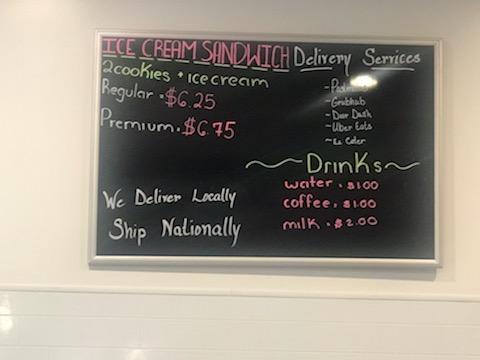 ICE CREAM SANDWICH
2 cookies + ice cream
Regular - $6.25
Premium - $6.75
We Deliver Locally
Ship Nationally
Delivery Services
~ Grubhub
~ Door Dash
~ Uber Eats
~ Drinks ~
water - $1.00
coffee - $1.00
milk - $2.00